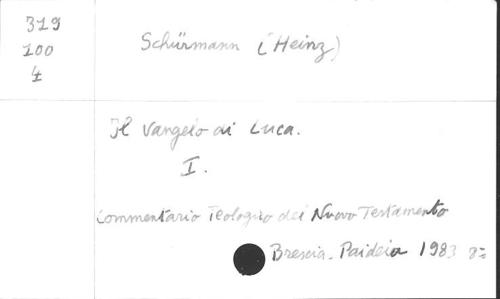 319
100
4
Schürmann (Heinz)
Il Vangelo di Luca.
I.
Commentario Teologico del Nuovo Testamento
Brescia. Paideia 1983 8=